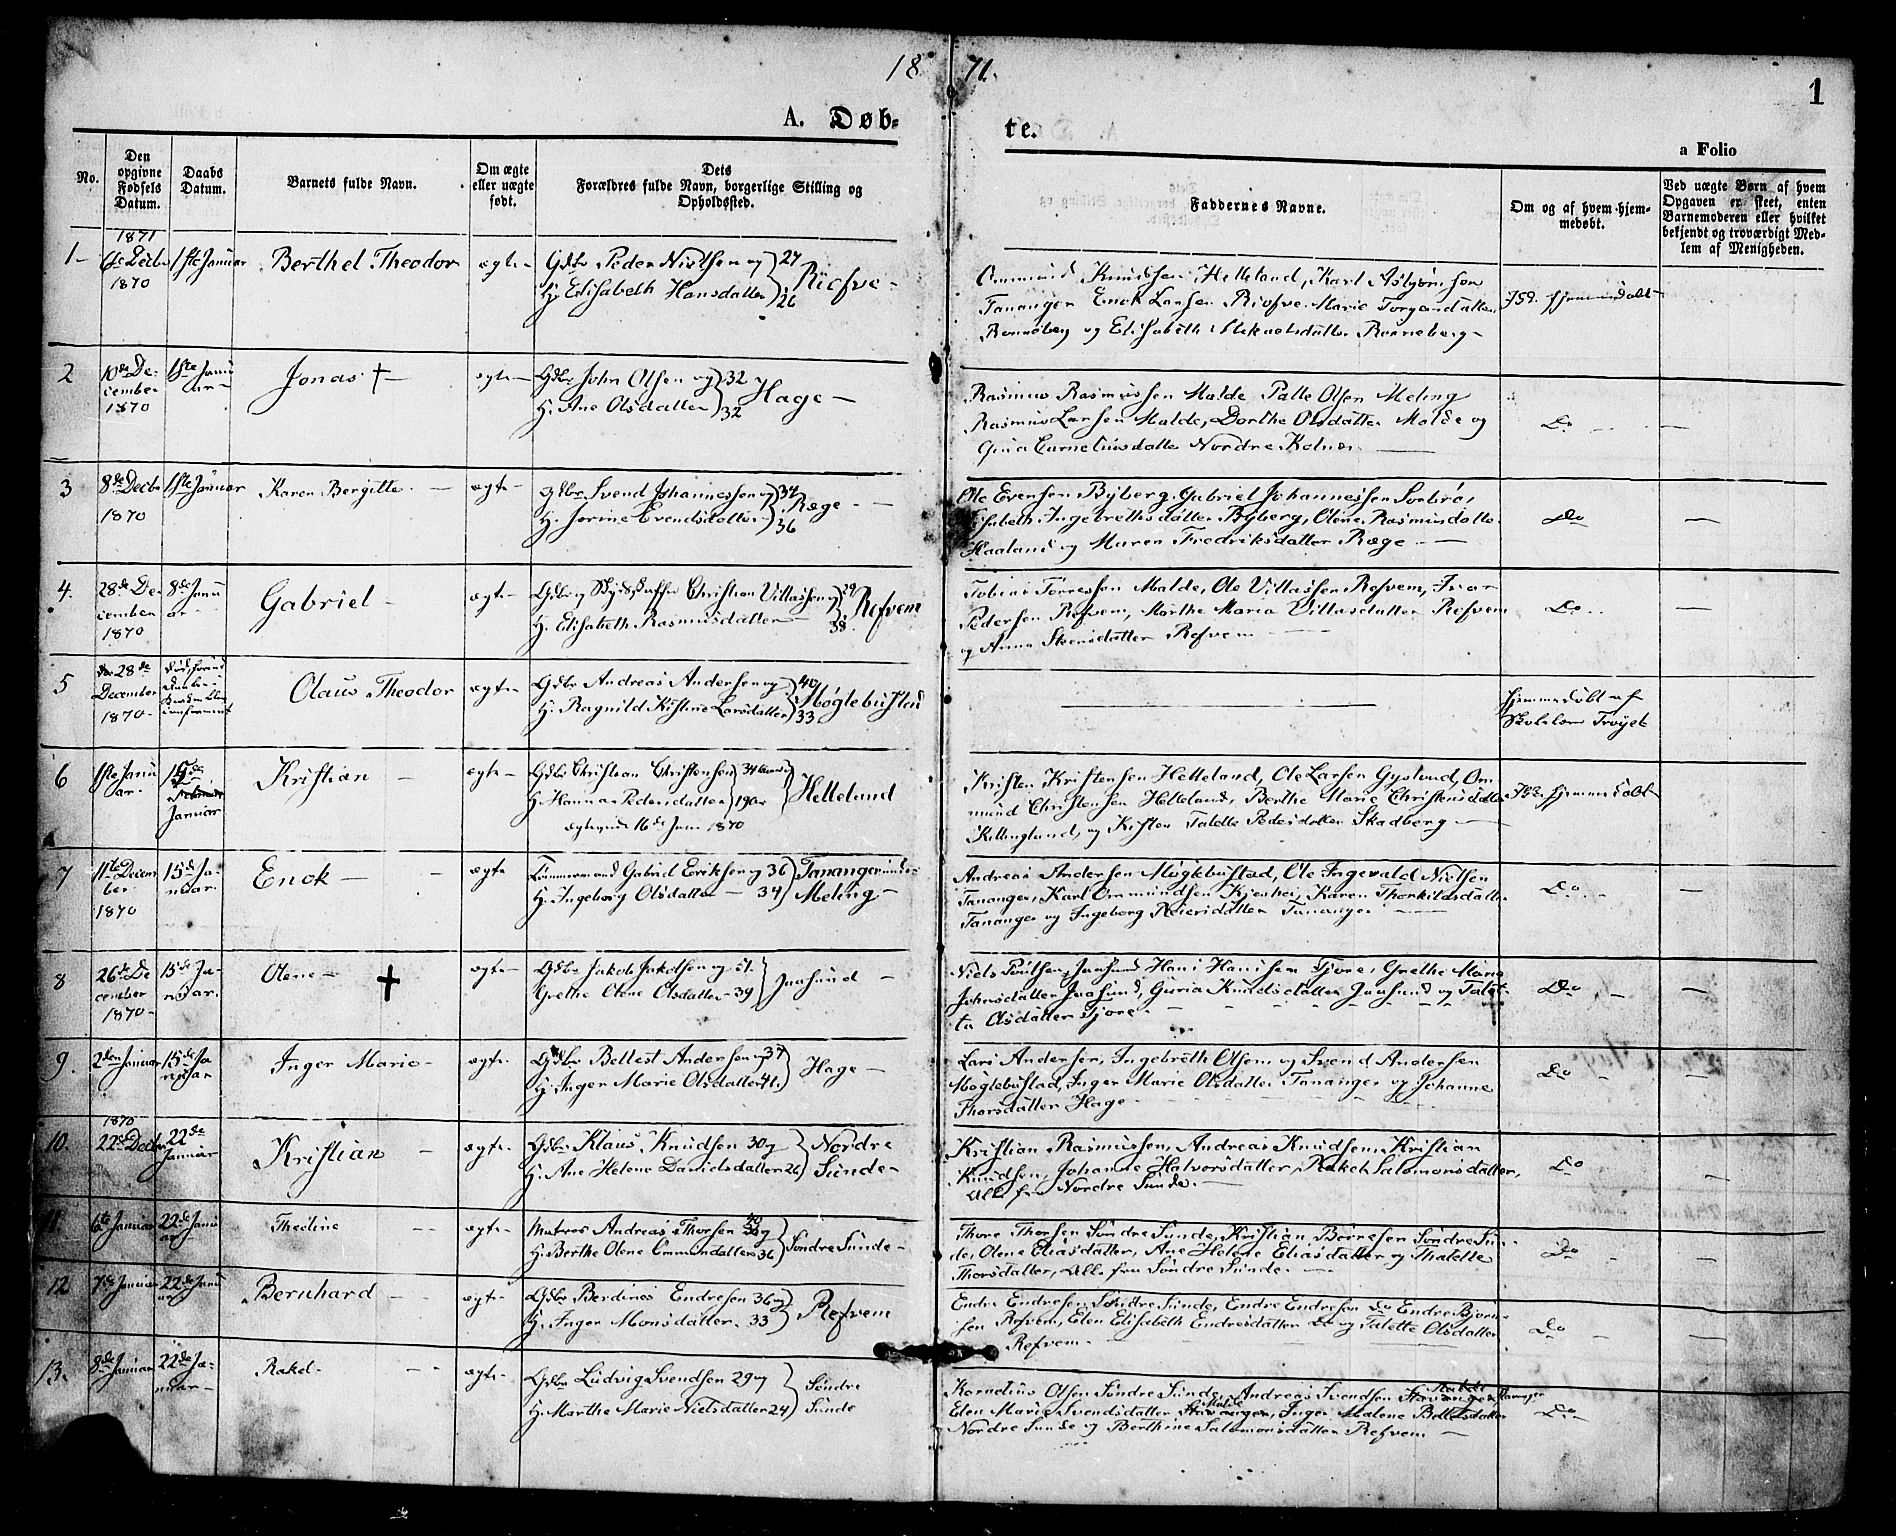 18 71.
1
A. Døb-
te.
a Folio
No.
Den opgivne Fødsels Datum.
Daabs Datum.
Barnets fulde Navn.
Om ægte eller uægte født.
Dets Forældres fulde Navn, borgerlige Stilling og Opholdssted.
Faddernes Navne.
Om og af hvem hjemmedøbt.
Ved uægte Børn af hvem
Opgaven er skeet, enten
Barnemoderen eller hvilket
bekjendt og troværdigt Med-
lem af Menigheden.
1871
1- Decbr 1870 1ste Januar Berthel Theodor ægte- Gdbr Peder Nielsen og 27
H. Elisabeth Hansdatter 26
Ommund Knudsen Helleland, Karl Asbjørnsen
Tananger Enok Larsen Marie Torgersdatter
Ronneberg og Elisabeth Mikaelsdatter Ronneberg-
hjemmedøbt
2 10de De-
cember
1870
1ste Janu
ar-
Jonas † - ægte- Gdbr John Olsen og 32
H. Ane Olsdatter 32
Hage-
Rasmus Rasmussen Malde Palle Olsen Meling
Rasmus Larsen Malde, Dorthe Olsdatter Malde og
Gina Corneliusdatter Nordre
Do
3 8de Decbr
1870
1ste Januar Karen Bergitte - ægte- Gdbr Svend Johannessen og 34
H. Serine Evendsdatter 36
Ræge-
Ole Evensen Byberg, Gabriel Johannessen
Elisabeth Ingebrethsdatter Byberg, Olene Rasmusdatter
Haaland og Maren Fredriksdatter Ræge-
Do -
4. 28de De-
cember
1870
8de Janu
ar
Gabriel- ægte- Gdbr og Christian Villassen og 29
H. Elisabeth Rasmusdatter - 38
Refvem
Tobias Torressen Malde, Ole Villassen Refvem, Ivar
Pedersen Refvem, Marthe Maria Villasdatter Refvem
og Anna Steensdatter Refvem
Do -
5 28de
December
1870-
Olaus Theodor ægte- Gdbr Andreas Andersen og 40
H. Ragnild Kistine Larsdatter 33
Møglebustad
Hjemmedøbt af
6 1ste Janu
ar-
15de
Januar
Kristian - ægte- Gdbr Christian Christensen 34
H. Hanna Pedersdatter
16de Juni 1870
Helleland
Kristen Kristensen Helleland, Ole Larsen Om
mund Christensen Helleland, Berthe Marie Christensdatter
og Kisten Talette Pedersdatter Skadberg
hjemmedøbt
7 11te Decem
ber
1870
15de Ja-
nuar.
Enok- ægte Tømmermand Gabriel Eriksen og 36
H. Ingeborg Olsdatter - 34
Tananger under
Meling-
Andreas Andersen Møglebustad, Ole Ingevald Nielsen
Tananger, Karl Ommundsen Karen Thorkildsdatter
Tananger og Ingeborg Tananger
Do -
8 26de De
cember
1870-
15de Ja-
nuar.
Olene- † ægte- Gdbr Jakob Jakobsen og 51.
Grethe Olene Olsdatter- 39
Jaasund-
Niels Jaasund Hans Hansen Tjore, Grethe Marie
Johnsdatter Jaasund, Guria Knudsdatter Jaasund og Talet-
ta Olsdatter Tjore-
Do -
9. 2den Januar 15de Ja
nuar
Inger Marie- ægte- Gdbr Bellest Andersen og 37
H. Inger Marie Olsdatter 41.
Hage-
Lars Andersen, Ingebreth Olsen og Svend Andersen
Møglebustad, Inger Marie Olsdatter Tananger og Johanne
Thorsdatter Hage-
Do -
1870
10. 22de Decbr 22de
Januar
Kristian - ægte- Gdbr Klaus Knudsen 30 og
H. Ane Helene Davidsdatter 26
Nordre
Sunde-
Kristian Rasmussen, Andreas Knudsen, Kristian
Knudsen, Johanne Halvorsdatter, Rakel Salomonsdatter,
Alle fra Nordre Sunde.-
Do -
11. 6te Januar 22de Janu
ar
Theoline ægte- Matros Andreas Thorsen 40 og
H. Berthe Olene Ommundsdatter 36
Søndre Sunde-
Thore Thorsen Søndre Sunde, Kristian Børresen Søndre Sun-
de, Olene Eliasdatter, Ane Helene Eliasdatter og Thalette
Thorsdatter, Alle fra Søndre Sunde.
Do -
12 7de Januar 22de Janu
ar
Bernhard - ægte- Gdbr Berdines Endresen 36 og
H. Inger Monsdatter. 33
Refvem
Endre Endresen Søndre Sunde, Endre Endresen do Endre Bjørn-
sen Refvem, Elen Elisabeth Endresdatter do og Talette Olsdatter
Refvem-
Do -
13. 8de Januar 22de Ja-
nuar-
Rakel- ægte- Gdbr Ludvig Svendsen 29 og
H. Marthe Marie Nielsdatter 24
Søndre
Sunde
Kornelius Olsen Søndre Sunde, Andreas Svendsen Malde Stavanger
Elen Marie Svendsdatter Malde Stavanger, Inger Malene Bellesdatter
Nordre Sunde og Berthine Salomonsdatter Refvem -
Do -